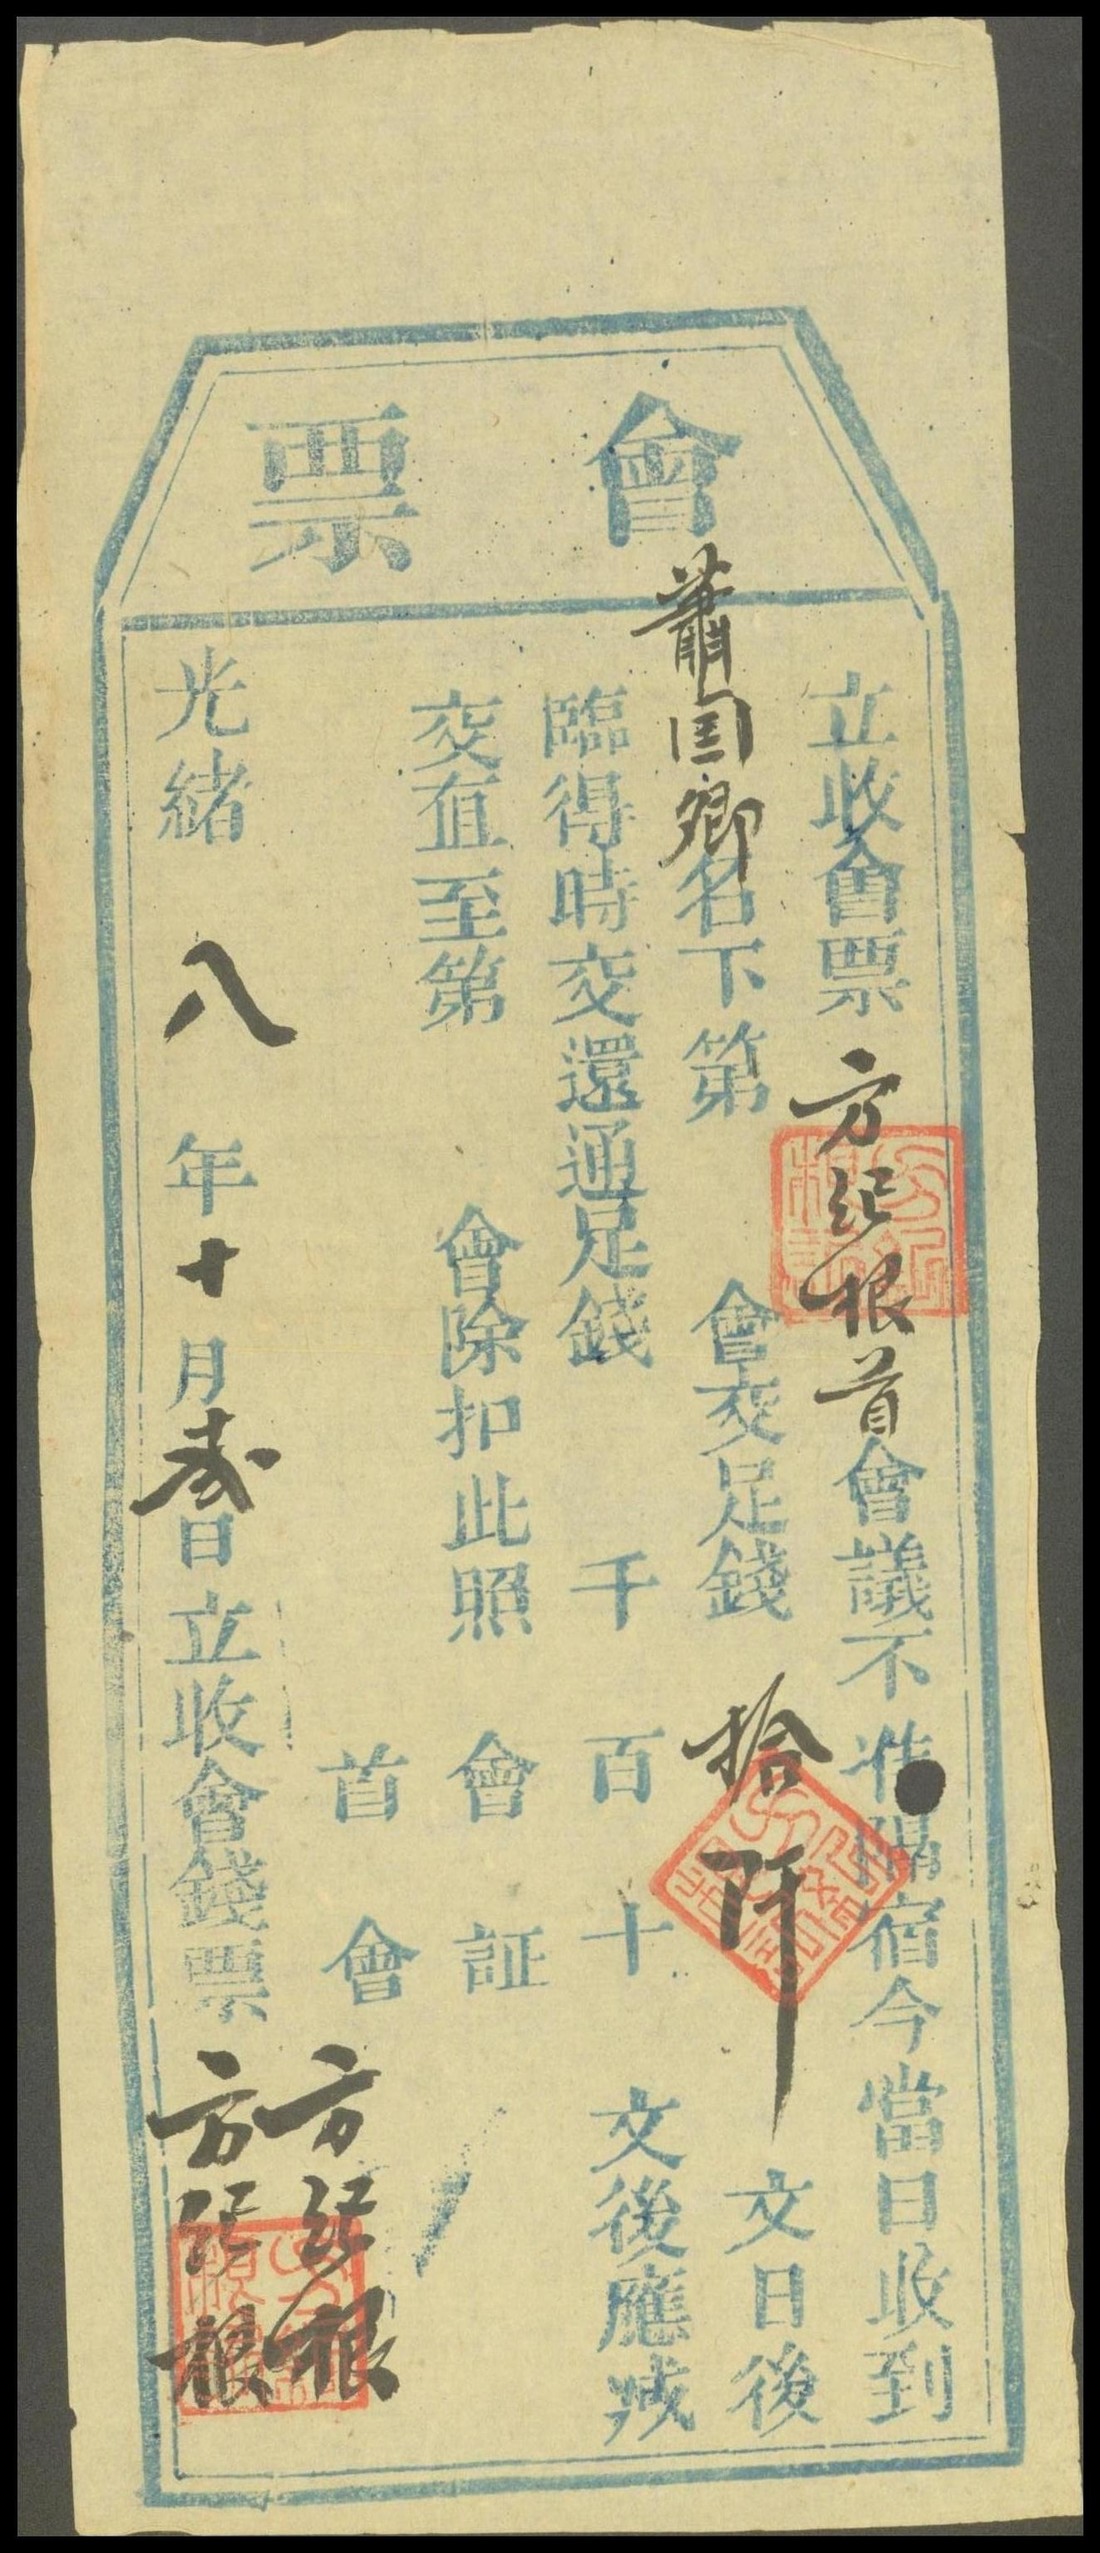 會票
立收會票方紀根首會議不准隔宿今當日收到
蕭国卿名下第會交足錢拾仟文日後
臨得時交還通足錢千百十文後應减
交直至第會除扣此照會証
首會方紀根
光緒八年十月日立收會錢票方紀根